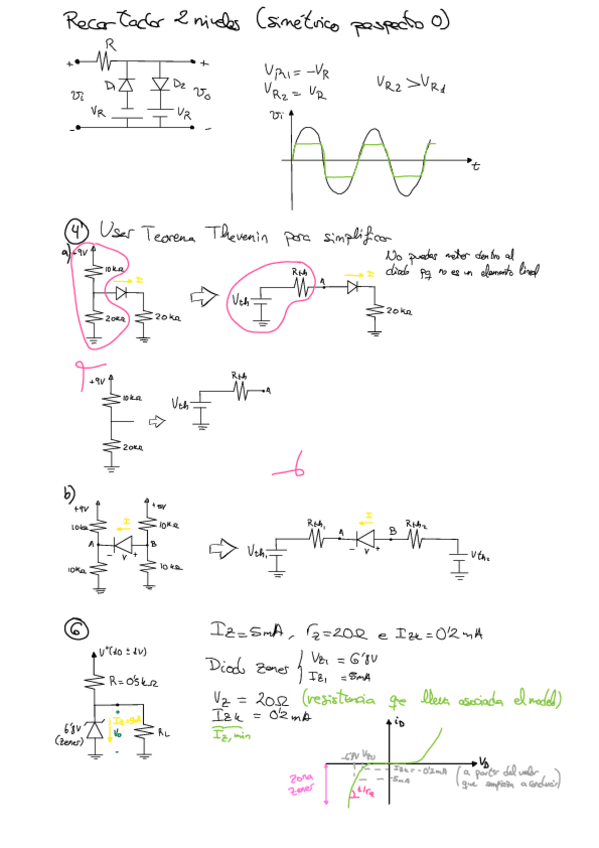 Recortador 2 niveles (simétrico respecto 0)
R
D1 D2
vi
VR VR
vo
VR1 = -VR
VR2 = VR
VR2 > VR1
vi
t
4' Usar Teorema Thevenin para simplificar
a) +9V
10kΩ
I
20kΩ
20kΩ
Vth
Rth
A
I
20kΩ
No puedes meter dentro al
diodo pq no es un elemento lineal
+9V
10kΩ
20kΩ
Vth
Rth
A
b)
+9V
10kΩ
I
10kΩ
A
B
- V +
10kΩ
10kΩ
Vth1
Rth1
A
I
- V +
B
Rth2
Vth2
6
V+(10 ± 1V)
R = 0'5kΩ
6'8V
(Zener)
Vo
RL
IZ = 5mA, rZ = 20Ω e IZK = 0'2 mA
Diodo Zener
VZ1 = 6'8V
IZ1 = 5mA
VZ = 20Ω (resistencia que lleva asociada el model)
IZK = 0'2 mA
IZ, min
iD
-6'8V VZ0
VD
IZK = -0'2mA
-5mA
(a partir del valor
que empieza a conducir)
zona
zener
1/rz